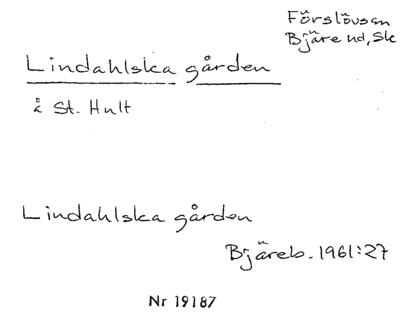 Förslövs sn
Bjäre hd, Sk
Lindahlska gården
å St. Hult
Lindahlska gården
Bjäreb. 1961:27
Nr 19187